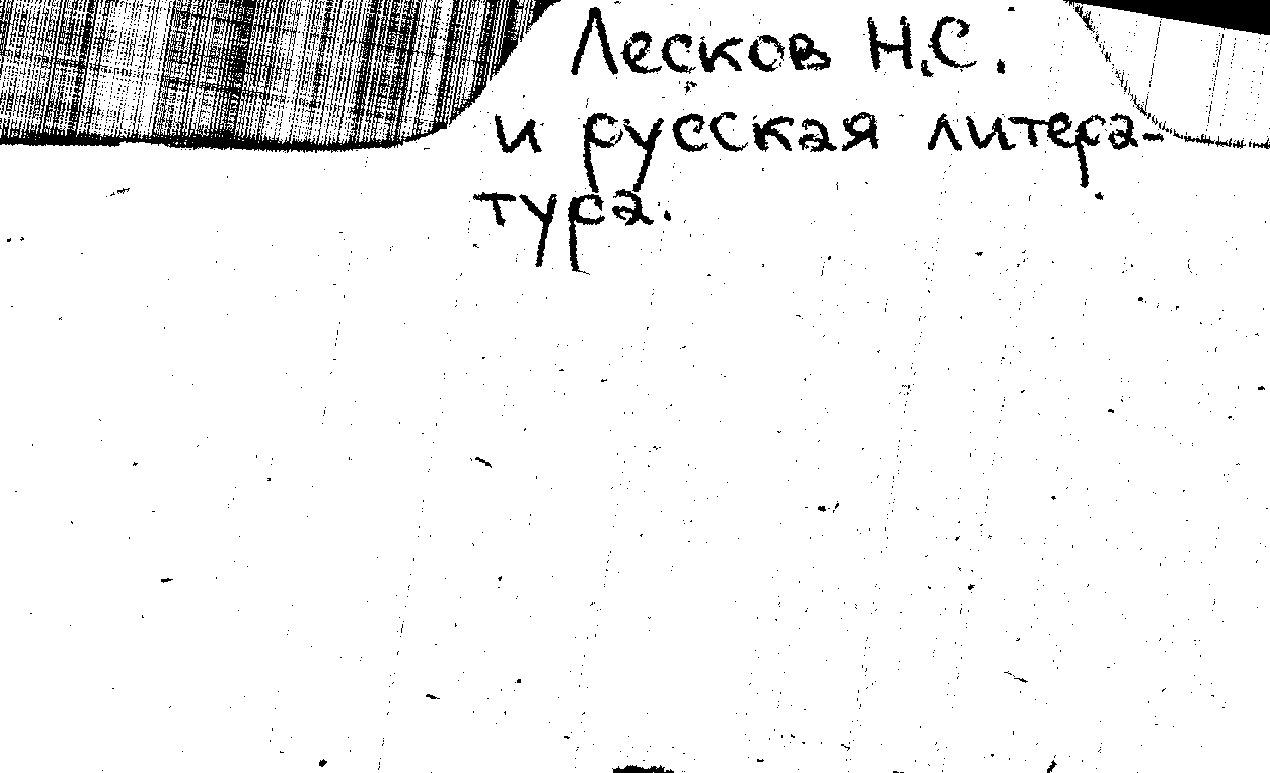 Лесков Н.С.
и русская литера-
тура.